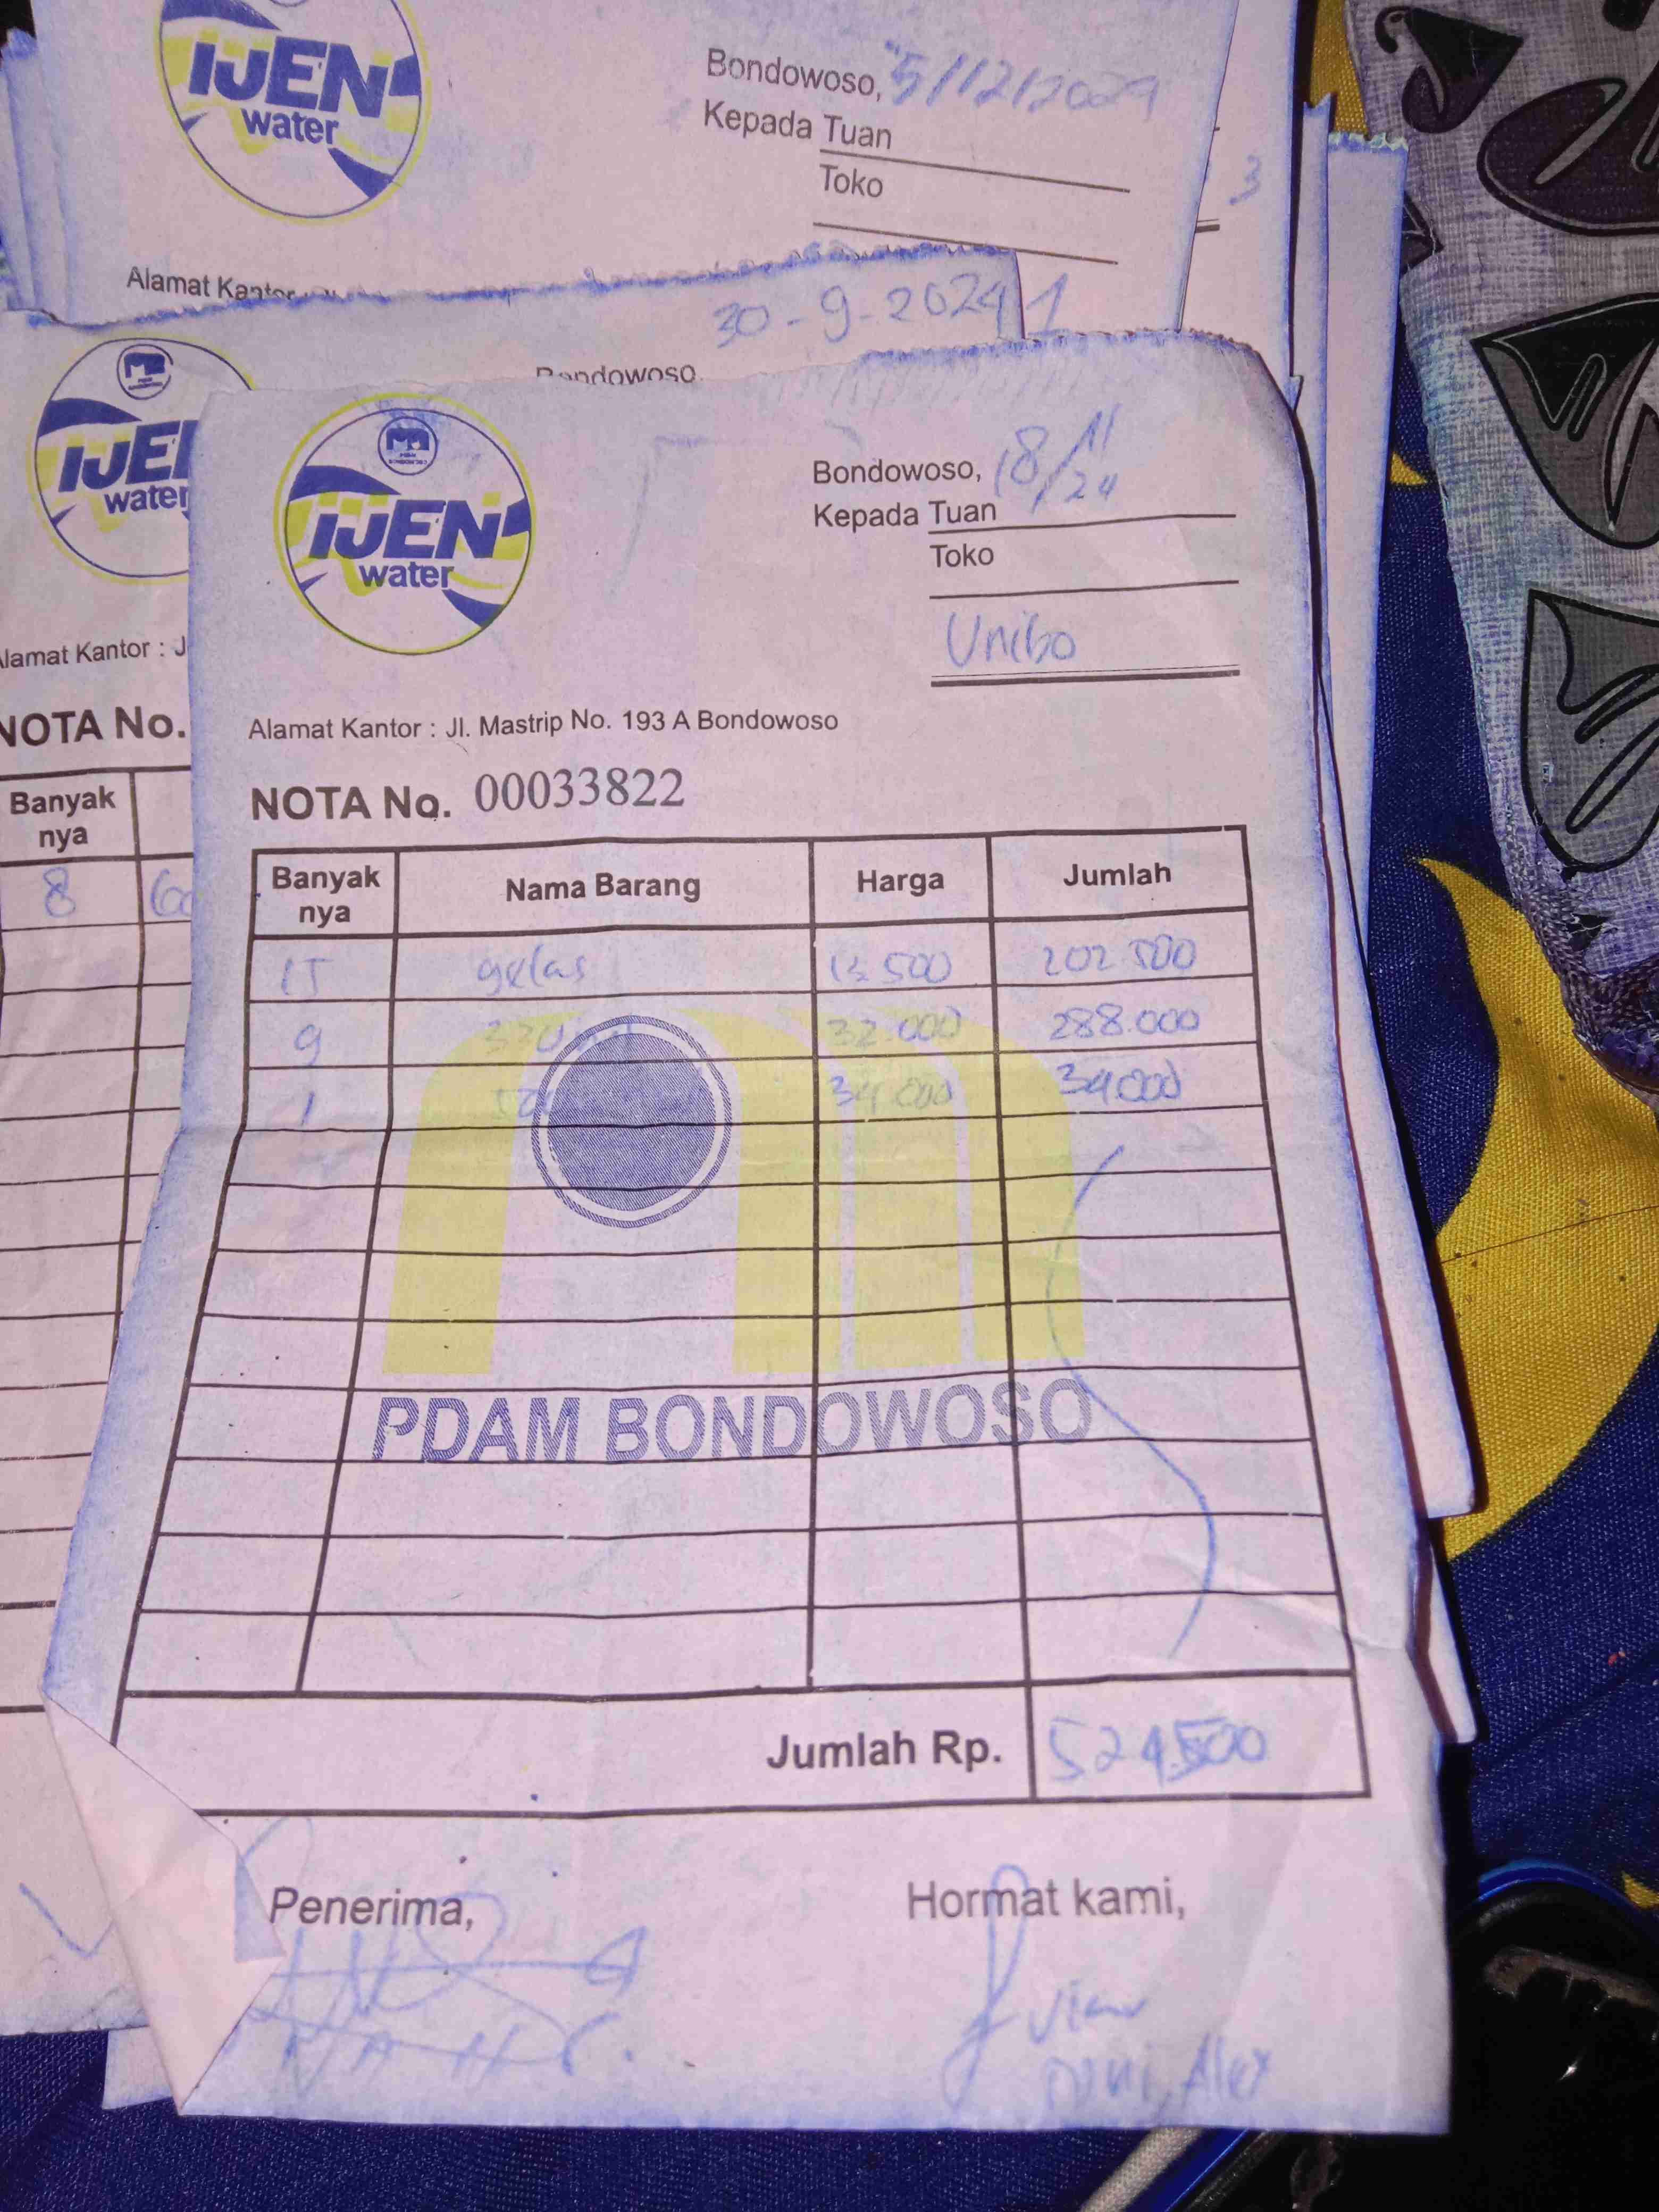 IJEN
water
Bondowoso, 5/12/2024
Kepada Tuan
Toko
3
Alamat Kantor
30-9-2024 1
Bondowoso,
IJEN
water
Alamat Kantor : J
NOTA No.
Banyak
nya
8
IJEN
water
Bondowoso, 18/11/24
Kepada Tuan
Toko
Unibo
Alamat Kantor : Jl. Mastrip No. 193 A Bondowoso
NOTA No. 00033822
Banyak nya Nama Barang Harga Jumlah
15 gelas 13.500 202.500
9 330 ml 32.000 288.000
1 34.000 34.000
PDAM BONDOWOSO
Jumlah Rp. 524.500
Penerima, Hormat kami,
Alex